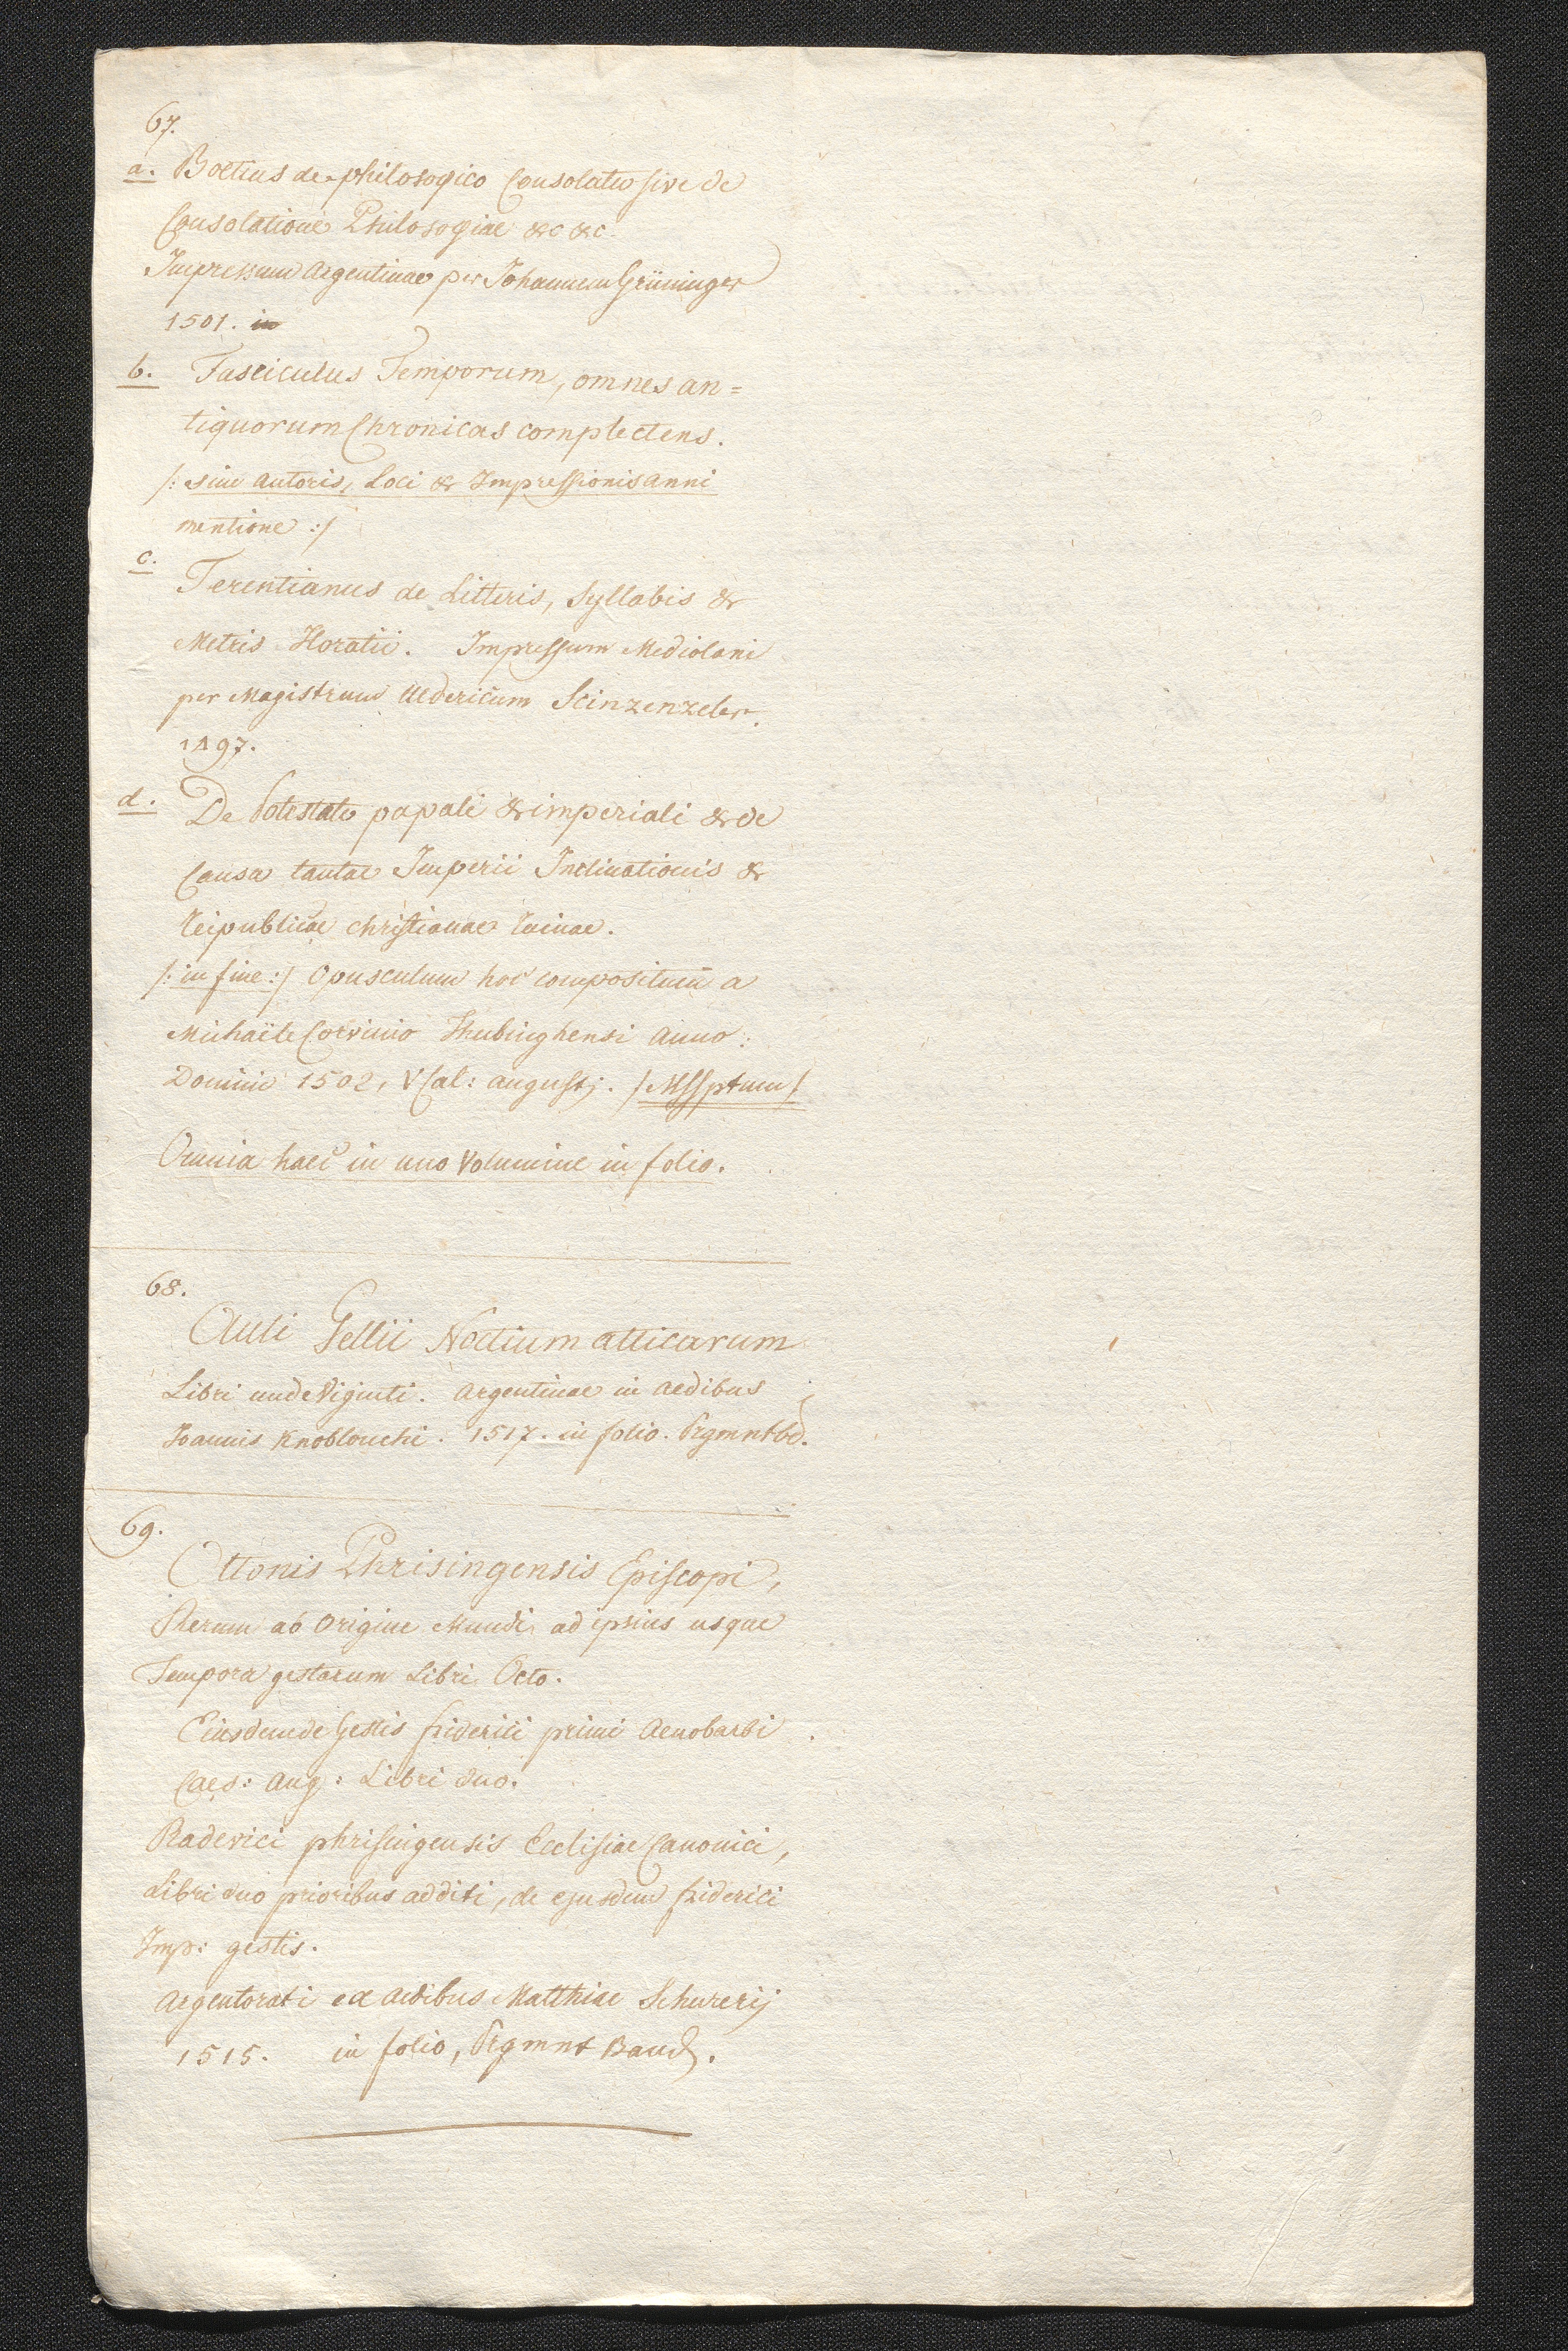 67.
a. Boetius de philosogico Consolatu sive de
Consolatione Philosogiae &c &c.
Impressum Argentinae per Johannem Grüninger
1501. in
b. Fasciculus Temporum, omnes an=
tiquorum Chronicas complectens.
/: sine autoris, Loci & Impressionis anni
mentione :/
c.
Terentianus de Litteris, Syllabis &
Metris Horatii. Impressum Mediolani
per Magistrum Uldericum Scinzenzeler.
1497.
d. De Potestate papali & imperiali & de
Causa tantae Imperii Inclinationis &
Reipublicae christianae ruinae.
/: in fine :/ Opusculum hoc compositum a
Michaële Corvinio Thubinghensi Anno:
Domini 1502, V Cal: augustj. / MSSptum /
Omnia haec in uno Volumine in folio.
68.
Auli Gellii Noctium atticarum
Libri undeviginti. Argentinae in aedibus
Joannis Knoblouchi. 1517. in folio. Prgmntbd.
69.
Ottonis Phrisingensis Episcopi,
Rerum ab origine Mundi ad ipsius usque
Tempora gestarum Libri Octo.
Eiusdem de Gestis friderici primi Aenobarbi
Caes: Aug: Libri duo.
Radevici phrisingensis Ecclisiae Canonici,
Libri duo prioribus additi, de ejusdem friderici
Imp: gestis.
Argentorati ex aedibus Matthiae Schurerij
1515. in folio, Prgmnt Band.